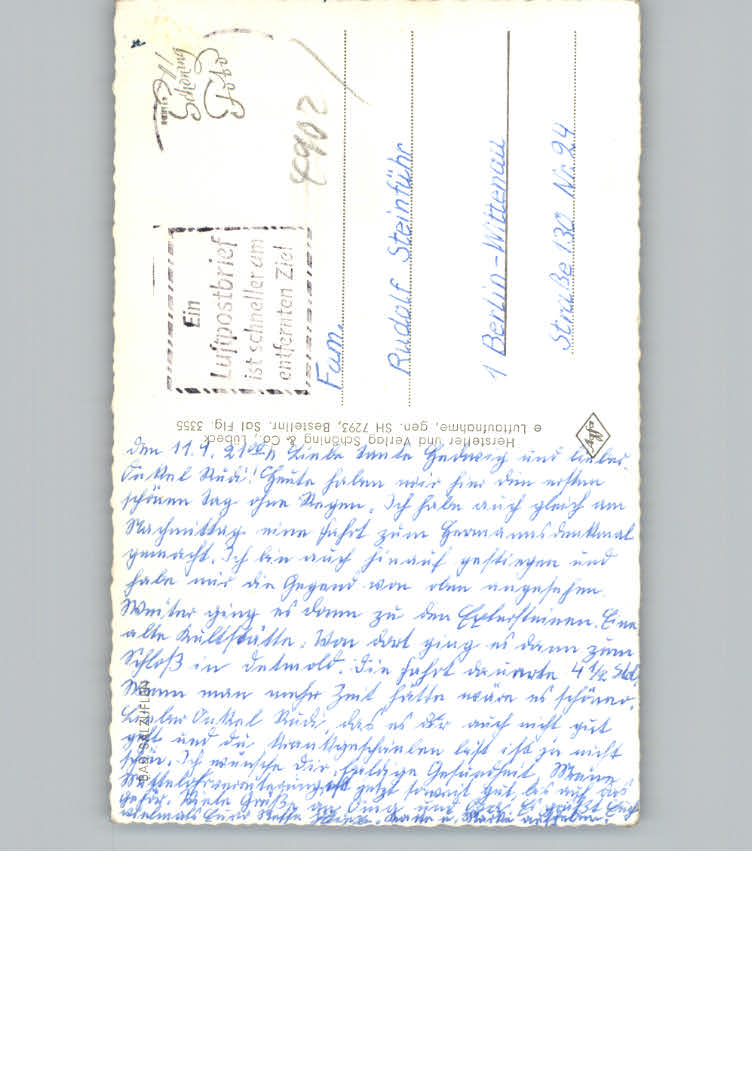 Schöning
Foto
4902
Ein
Luftpostbrief
ist schneller am
entfernten Ziel
Fam.
Rudolf Steinführ
1 Berlin-Wittenau
Straße 130 Nr. 24
Hersteller und Verlag Schöning & Co., Lübeck
e Luftaufnahme, gen. SH 7293, Bestellnr. Sal Flg. 3355
Agfa
BAD SALZUFLEN
den 11.9. Liebe Tante Hedwig und lieber
Onkel Rudi! Heute haben wir hier den ersten
schönen Tag ohne Regen. Ich habe auch gleich am
Nachmittag eine Fahrt zum Hermannsdenkmal
gemacht. Ich bin auch hinauf gestiegen und
habe mir die Gegend von oben angesehen.
Weiter ging es dann zu den Externsteinen. Eine
alte Kultstätte. Von dort ging es dann zum
Schloß in Detmold. Die Fahrt dauerte 4 1/2 Std.
Wenn man mehr Zeit hätte wäre es schöner.
Lieber Onkel Rudi, das es Dir auch nicht gut
geht und du krankgeschrieben bist ist ja nicht
schön. Ich wünsche Dir baldige Gesundheit. Meine
jetzt soweit gut, bis auf das
Gehör. Viele Grüße an und Es grüßt Euch
vielmals Euer Neffe